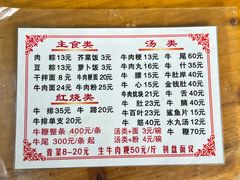 主食类
肉 粽 13元 芥菜饭 3元
豆 粽 13元 萝卜饭 3元
干拌面 8元 牛肉粳面 20元
牛肉面 24元 牛肉粉 25元
红烧类
牛 排 35元 牛 蹄 20元
牛排单支 20元
牛鞭整条 400元/条
牛尾 300元/条 起
汤类
牛肉粳 13元 牛 尾 60元
牛肉片 35元 牛 舌 35元
牛 腩 35元 牛肚岸 40元
牛 心 35元 金钱肚 40元
牛 筋 40元 牛 肚 35元
牛大肚 23元 牛 脑 35元
牛百叶 23元 鲨鱼片 15元
牛 筋 40元 水丸汤 12元
汤类+面 3元/碗 牛 鞭 70元
汤类+粉 4元/碗
青菜8-20元 生牛肉粳50元/斤 剁盘面议